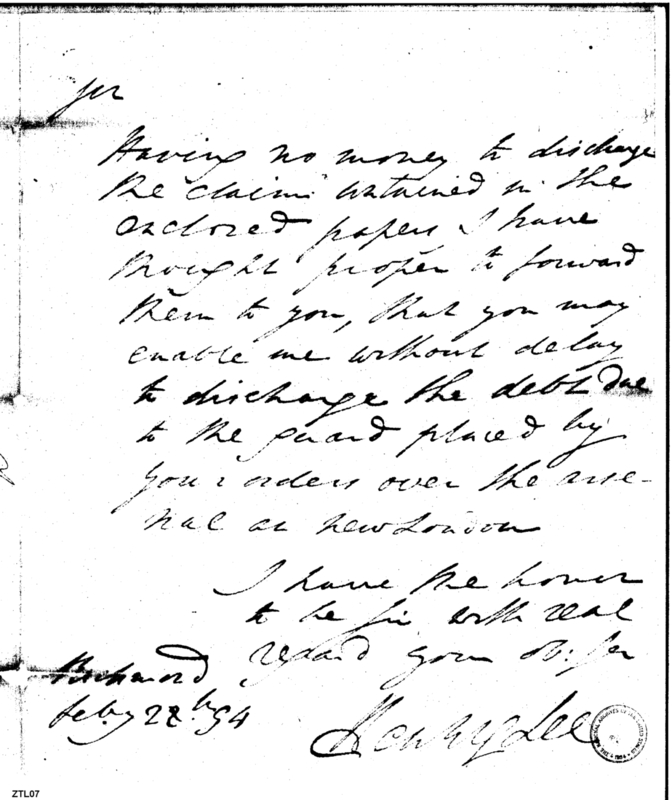 Sir
Having no money to discharge
the claim contained in the
enclosed papers I have
thought proper to forward
them to you, that you may
enable me without delay
to discharge the debt due
to the guard placed by
your orders over the arse-
nal at new London
I have the honor
to be Sir with real
regard your ob: Ser
Richmond
feby 22th 94
Henry Lee
ZTL07